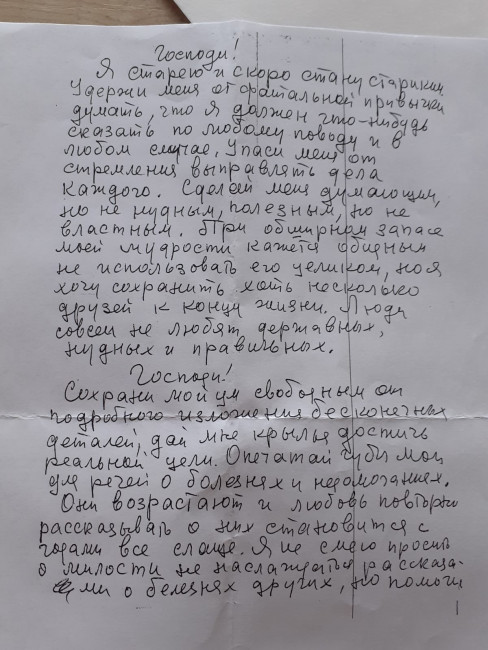 Господи!
Я старею и скоро стану стариком
Удержи меня от фатальной привычки
думать, что я должен что-нибудь
сказать по любому поводу и в
любом случае. Упаси меня от
стремления выправлять дела
каждого. Сделай меня думающим,
но не нудным, полезным, но не
властным. При обширном запасе
моей мудрости кажется обидным
не использовать его целиком, но я
хочу сохранить хоть несколько
друзей к концу жизни. Люди
совсем не любят державных,
нудных и правильных.
Господи!
Сохрани мой ум свободным от
подробного изложения бесконечных
деталей, дай мне крылья достичь
реальной цели. Опечатай губы мои
для речей о болезнях и недомоганиях.
Они возрастают и любовь повторно
рассказывать о них становится с
годами все слаще. Я не смею просить
о милости не наслаждаться рассказа-
ми о белезнях других, но помоги
1